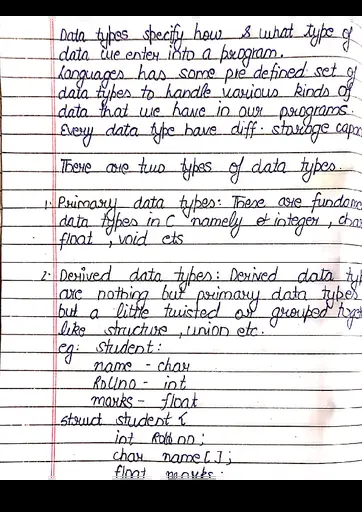 Data types specify how & what type of
data we enter into a program.
Languages has some pre defined set of
data types to handle various kinds of
data that we have in our programs.
Every data type have diff. storage capac
There are two types of data types.
1. Primary data types: These are fundame
data types in C namely integer, char
float, void ets
2. Derived data types: Derived data typ
are nothing but primary data types
but a little twisted or grouped toget
like structure, union etc.
eg: student:
name - char
Rollno - int
marks - float
struct student {
int Rollno;
char name[];
float marks;